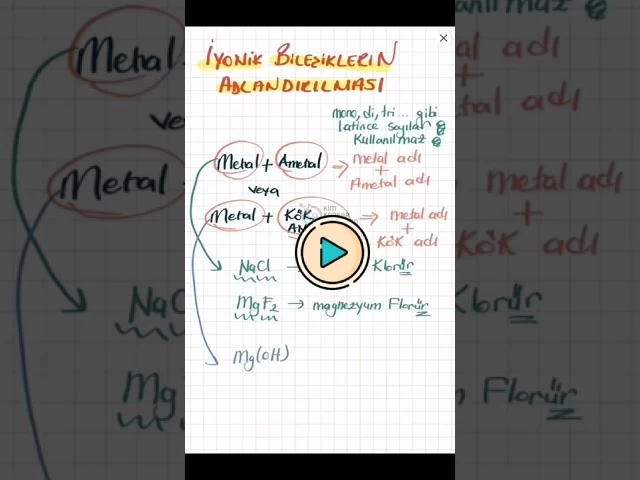 İYONİK BİLEŞİKLERİN
ADLANDIRILMASI
mono, di, tri... gibi
latince sayılar
Kullanılmaz
Metal + Ametal ⇒ metal adı
+
Ametal adı
veya
Metal + KÖK ⇒ metal adı
+
KÖK adı
NaCl → Klorür
MgF₂ → magnezyum Florür
Mg(OH)